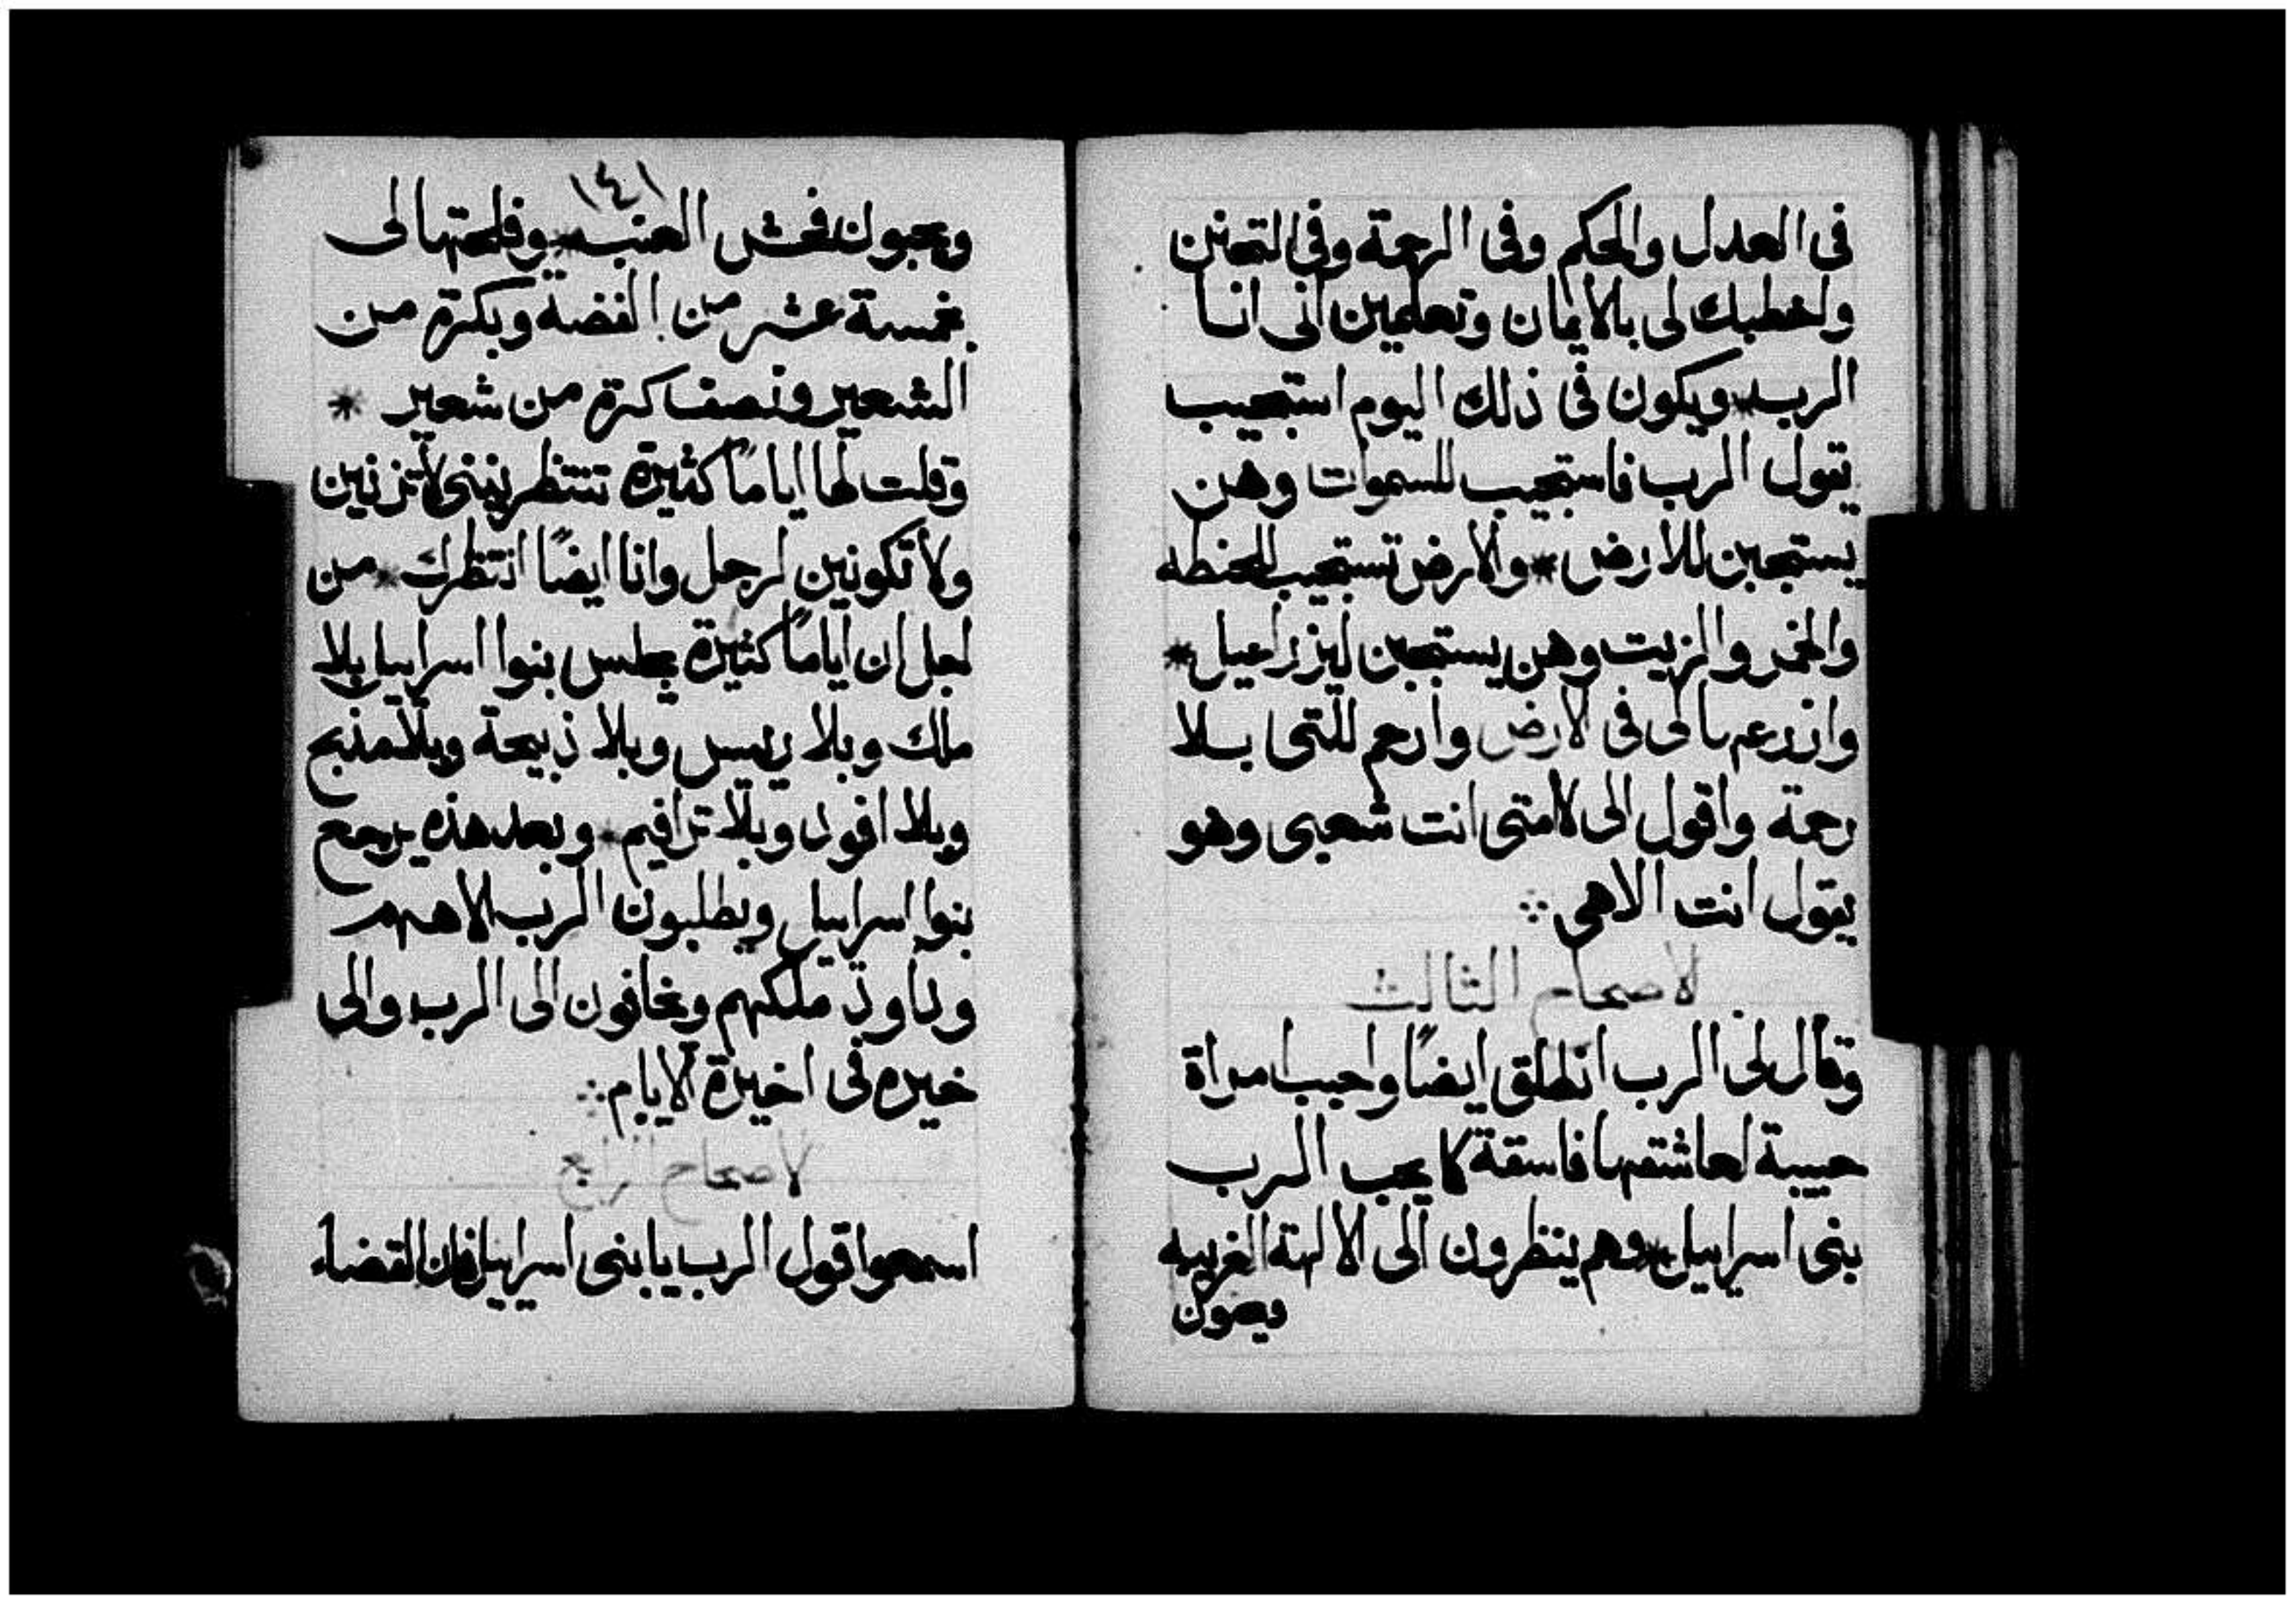 فى العدل والحكم وفى الرحمة وفى التحنن
واخطبك لى بالايمان وتعلمين انى انا
الرب * ويكون فى ذلك اليوم استجيب
يقول الرب فاستجيب للسموات وهن
يستجبن للارض * والارض تستجيب للحنطه
والخمر والزيت وهن يستجبن ليزراعيل *
وازرعها لى فى الارض وارحم للتى بلا
رحمة واقول الى لامتى انت شعبى وهو
يقول انت الاهى ⁘
الاصحاح الثالث
وقال لى الرب انطلق ايضًا واحبب امراة
حبيبة لعاشقها فاسقة كا يحب الرب
بنى اسراييل * وهم ينظرون الى الالهة الغريبه
ويحبون
١٤١
ويحبون العنب * وفلحتها لى
بخمسة عشر من الفضة وبكرة من
الشعير ونصف كرة من شعير *
وقلت لها ايامًا كثيرة تنتظرينى لا تزنين
ولا تكونين لرجل وانا ايضًا انتظرك * من
اجل ان ايامًا كثيرة يجلس بنوا اسراييل بلا
ملك وبلا رييس وبلا ذبيحة وبلا مذبح
وبلا افود وبلا ترافيم * وبعد هذه يرجع
بنوا اسراييل ويطلبون الرب الاههم
وداود ملكهم ويخافون الى الرب والى
خيره فى اخيرة الايام ⁘
الاصحاح الرابع
اسمعوا قول الرب يا بنى اسراييل فان القضاء